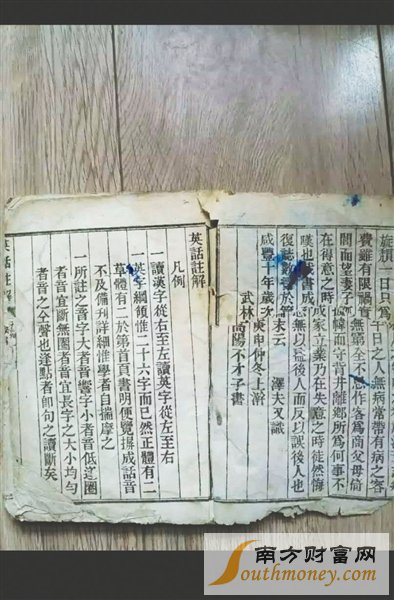 一日只為千日之人無病常帶有病之容
費雖有限禍實無第全不思作客為商父母倚
閭而望妻子幃而守背井離鄉所為何事不
在得意之時成家立業乃在失意之時徒然悔
嘆也茲書成無以後人而反以誤後人也
復誌數於篇末云 澤夫又識
咸豐十年歲次庚申仲冬上澣
武林高陽不才子書
英話註解
凡例
一讀漢字從右至左讀英字從左至右
一英字綱領惟二十六字而已然正體有二
草體有二於第首頁書明便覽揖成話音
不及備刊詳細惟學者自揣摩之
一所註之音字大者音響字小者音低逐圈
者音宜斷無圈者音宜長字之大小均勻
者音之仝聲也逢點者即句之讀斷矣
英話註解
南方财富网
Southmoney.com